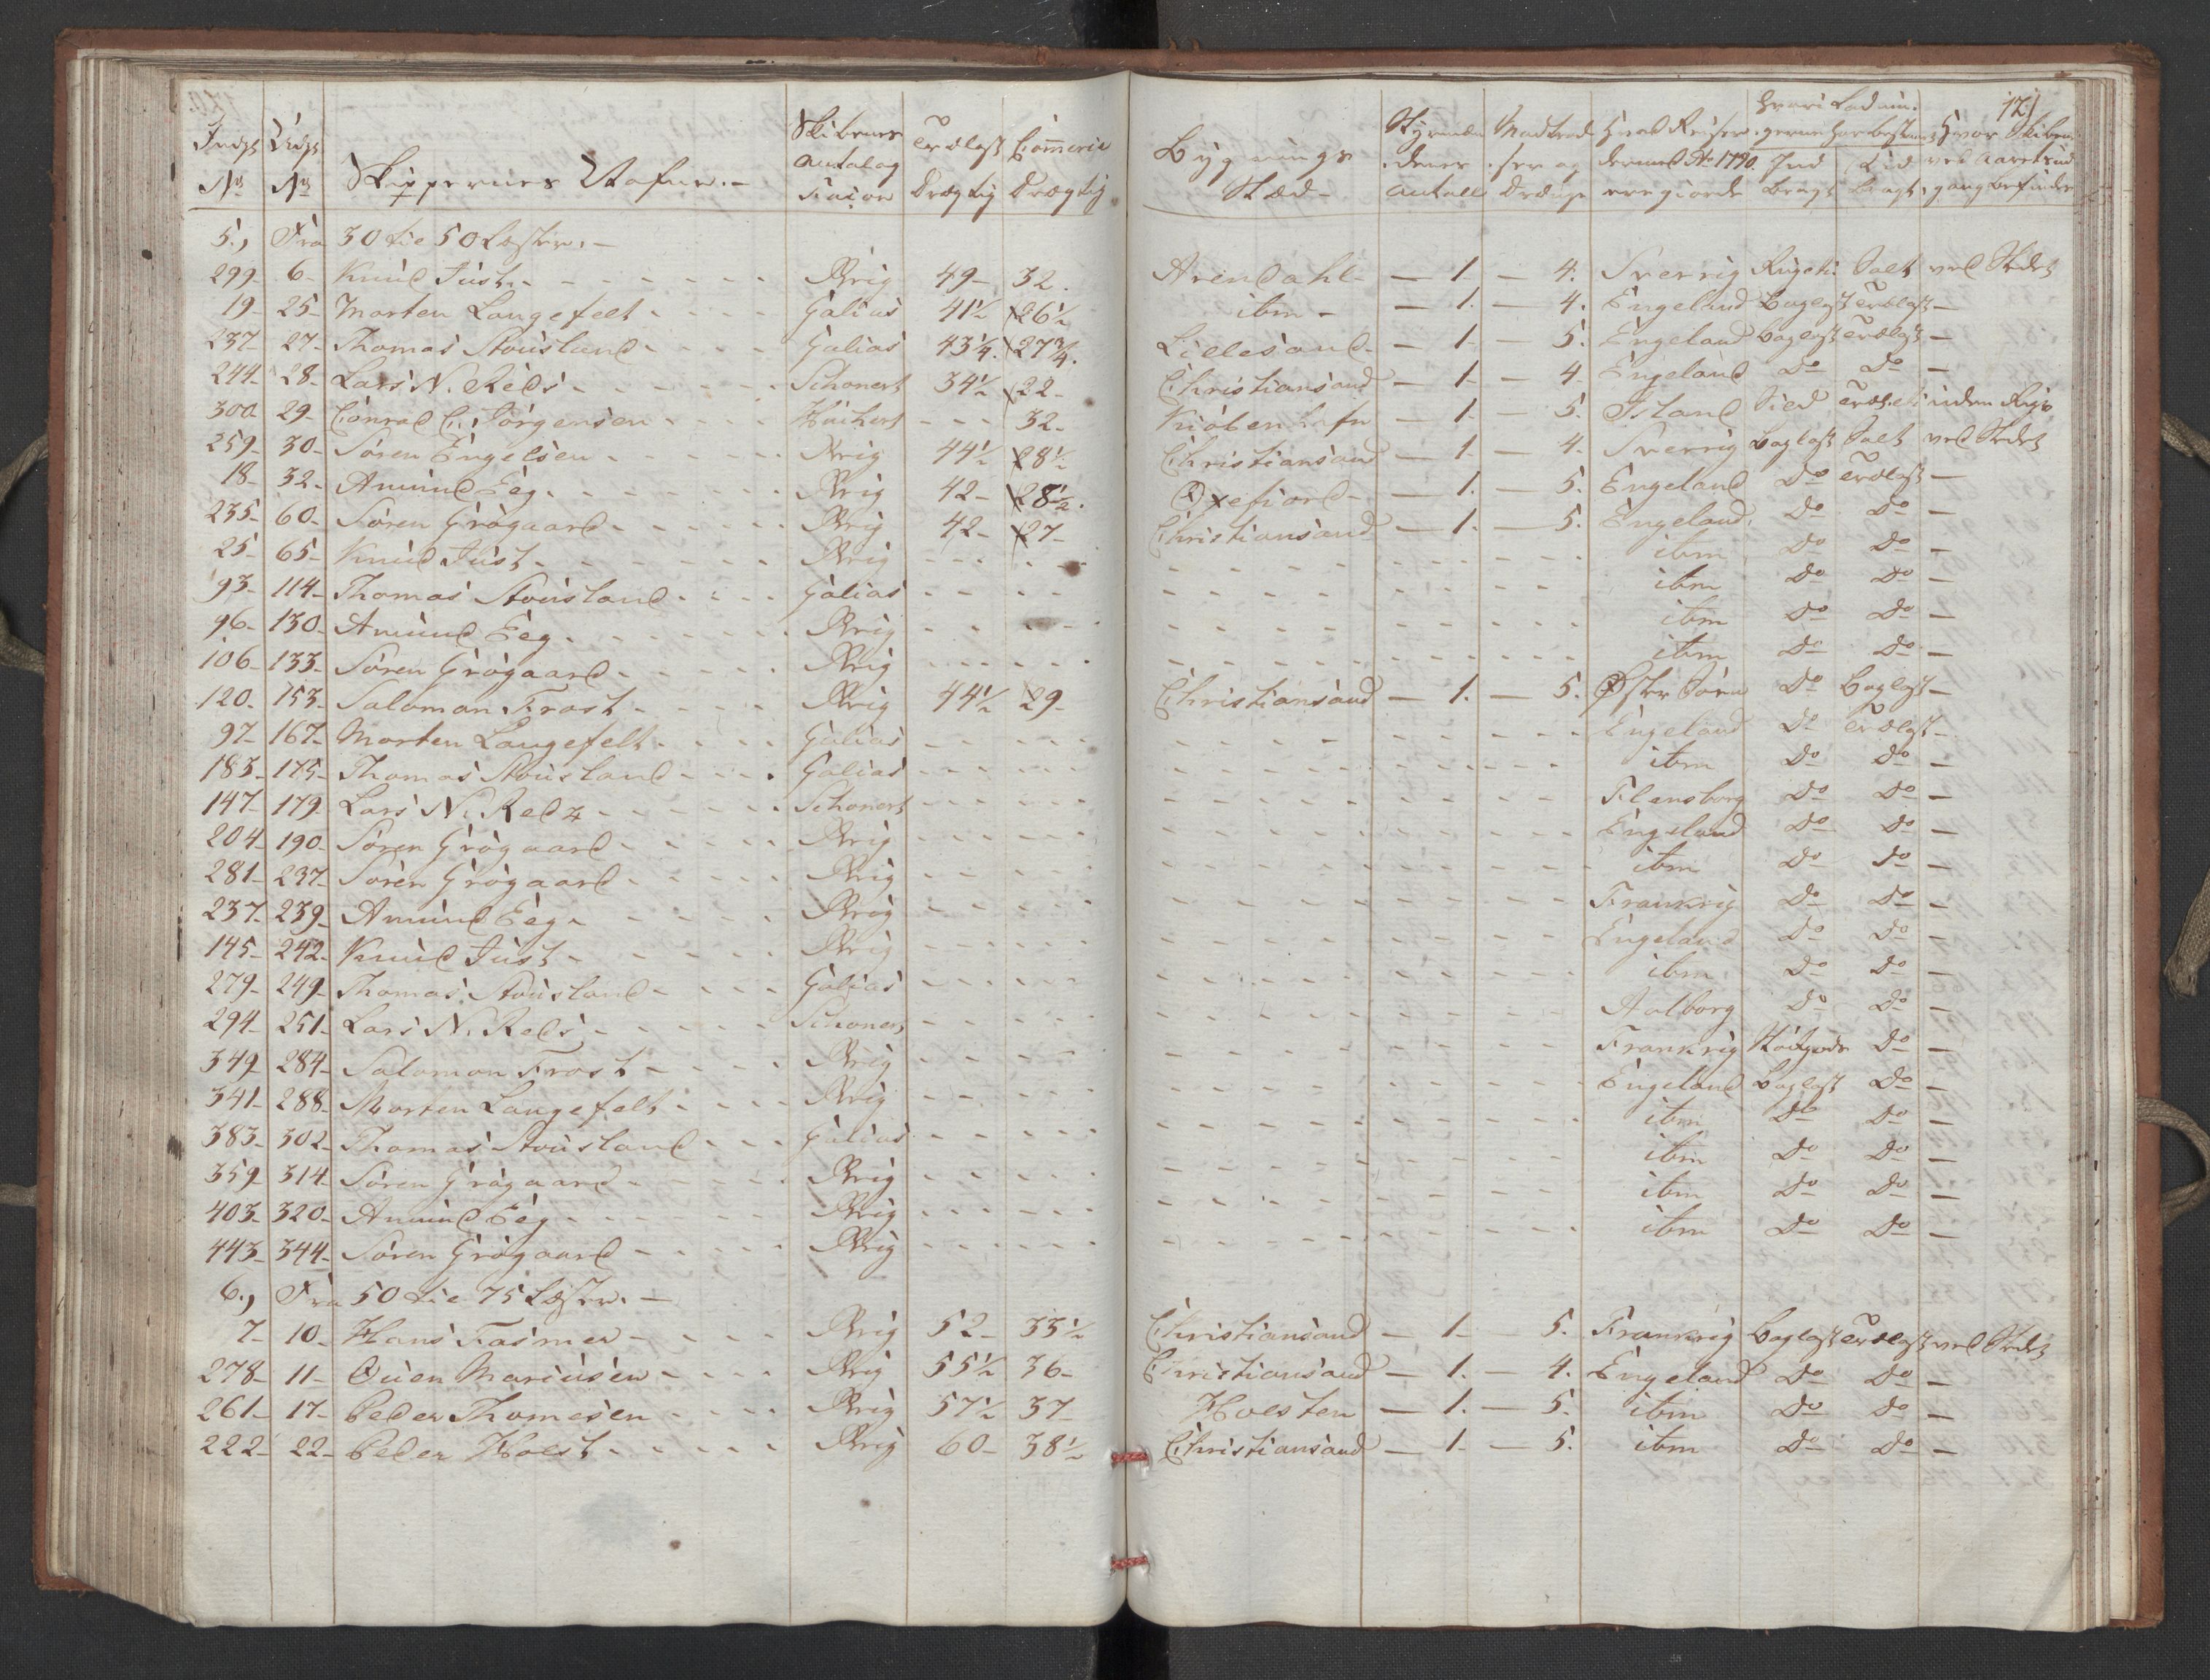 121
Indgt Udgt Skibenes Trælast Commerce Bygnings Styrmæn Matroser Hvad Reiser hvori Ladnin Hvor Skibene
No No Skippernes Nafne.- antal og Drægtig Drægtig Stæd- antall ere giorde Ind bragt Ud bragt gang befinder
5., Fra 30 til 50 Læster.-
299- 6- Knud Just. Brig 49- 32. Arendahl- - 1. - 4. Sverrig Salt ved Stedet
19- 25- Morten Langefelt Galias 41½ 26½ ibm- - 1. - 4. Engeland Baglast Trælast -
237- 27- Thomas Stousland Galias 43¼. 27¾. Lillesand- - 1- - 5. Engeland Baglast Trælast -
244- 28- Lars N. Reds Schonert 34½ 22- Christiansand - 1- - 4- Engeland Do Do -
300 29- Conrad C. Jörgensen Huchert - - - 32- Kiöbenhafn - 1- - 5. Island Sild uden Rigs
259- 30- Sören Engelsen Brig 44½ 28½ Christiansand - 1- - 4. Sverrig Baglast Salt ved Stedet
18- 32- Amund Eeg Brig 42- 28½. Oxefiord- - 1. - 5. Engeland Do Trælast -
235- 60- Sören Grögaard Brig 42- 27- Christiansand - 1. - 5. Engeland. Do Do -
25- 65- Knud Just Brig ibm Do Do -
93- 114- Thomas Stousland Galias ibm Do Do -
96- 130- Amund Eeg Brig ibm Do Do -
106- 133- Sören Grögaard Brig ibm Do Do -
120- 153- Salomon Frost Brig 44½ 29- Christiansand - 1. - 5. Öster Söen Do Baglast -
97- 167- Morten Langefelt Galias Engeland Do Trælast -
183- 175- Thomas Stousland Galias ibm Do Do -
147- 179- Lars N. Reds Schonert Flensborg Do Do -
204- 190- Sören Grögaard Brig Engeland Do Do -
281- 237- Sören Grögaard Brig ibm Do Do -
237- 239- Amund Eeg Brig Frankrig Do Do -
145- 242- Knud Just Brig Engeland Do Do -
279- 249- Thomas Stousland Galias ibm Do Do -
294- 251- Lars N. Reds Schonert Aalborg Do Do -
349- 284- Salomon Frost Brig Frankrig Do -
341- 288- Morten Langefelt Brig Engeland Baglast Do -
383- 302- Thomas Stousland Galias ibm Do Do -
359- 314- Sören Grögaard Brig ibm Do Do -
403- 320- Amund Eeg Brig ibm Do Do -
443- 344- Sören Grögaard Brig ibm Do Do -
6., Fra 50 til 75 Læster.-
7- 10- Hans Fasmer Brig 52- 33½ Christiansand - 1- - 5. Frankrig Baglast Trælast ved Stedet
278- 11- Ouen Mariusen Brig 55½ 36- Christiansand - 1. - 4. Engeland Do Do -
261- 17- Peder Thomesen Brig 57½ 37- Holsten - 1. - 5. ibm Do Do -
222- 22- Peder Holst Brig 60- 38½ Christiansand - 1- - 5. ibm Do Do -